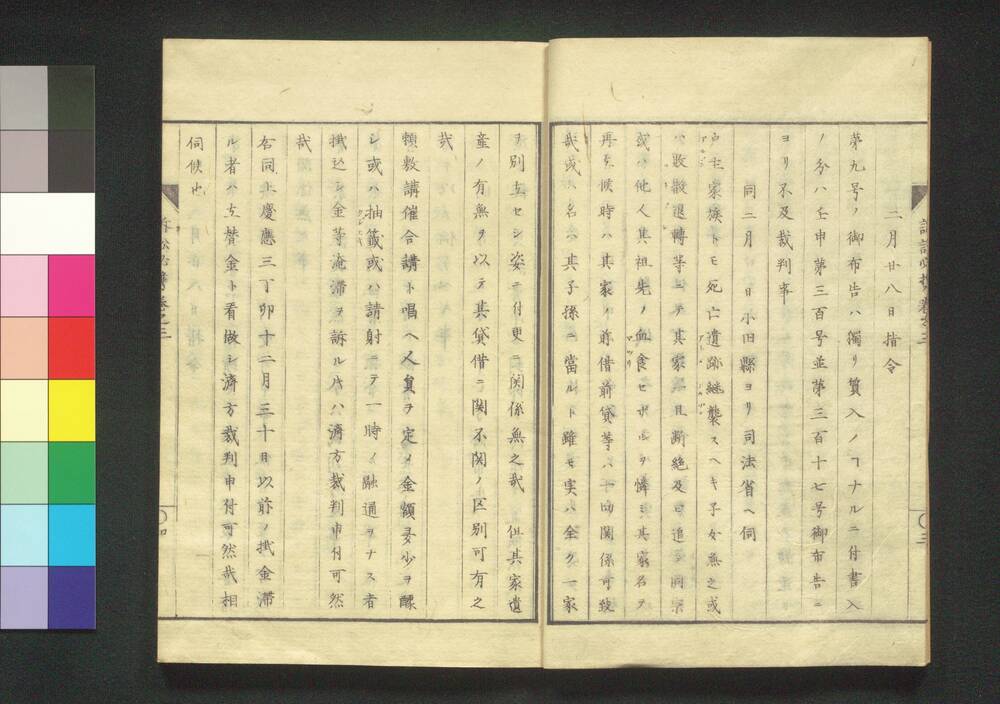 二月廿八日指令
第九号ノ御布告ハ獨リ質入ノヿナルニ付書入
ノ分ハ壬申第三百号並第三百十七号御布告ニ
ヨリ不及裁判事
同二月 日小田縣ヨリ司法省ヘ伺
戸主家族トモ死亡遺跡継襲スヘキ子女無之或
ハ敗散退轉等ニテ其家 且断絶及ヒ追テ同宗
或ハ他人其祖先ノ血食セサルヲ憐ミ其家名ヲ
再興候時ハ其家ノ前借前貸等ハ一切関係可致
哉或ハ名ハ其子孫ニ當ルト雖モ実ハ全ク一家
ヲ別立セシ姿ニ付更ニ関係無之哉 但其家遺
産ノ有無ヲ以テ其貸借ニ関不関ノ区別可有之
哉
頼敷講催合講ト唱ヘ人員ヲ定メ金額多少ヲ醵
シ或ハ抽籤或ハ請射ニテ一時ノ融通ヲナス者
掛込シ金等淹滞ヲ訴ル片ハ済方裁判申付可然
哉
右同上慶應三丁卯十二月三十日以前ノ掛金滞
ル者ハ立替金ト看做シ済方裁判申付可然哉相
伺候也